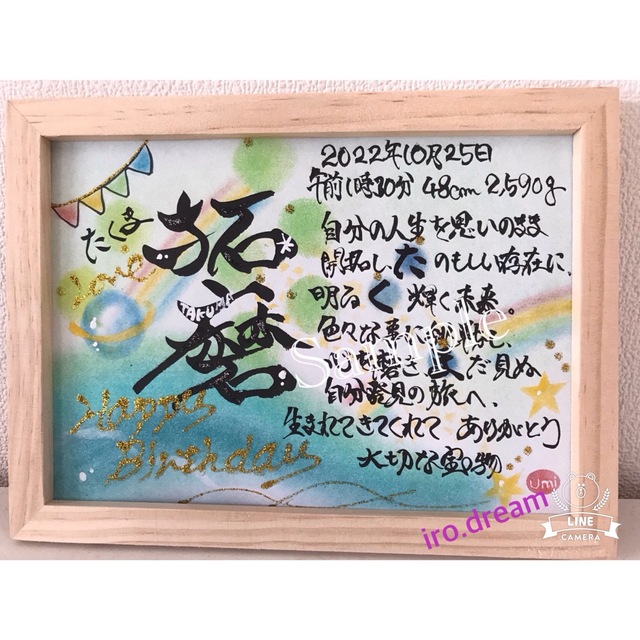 2022年10月25日
午前1時30分 48cm 2,590g
たくま
拓磨
TAKUMA
love
自分の人生を思いのまま
開拓し、たのもしい存在に、
明るく輝く未来。
色々な事に
を磨きまだ見ぬ
自分発見の旅へ。
生まれてきてくれて ありがとう
大切な宝物
Happy
Birthday
Sample
Umi
iro.dream
LINE
CAMERA